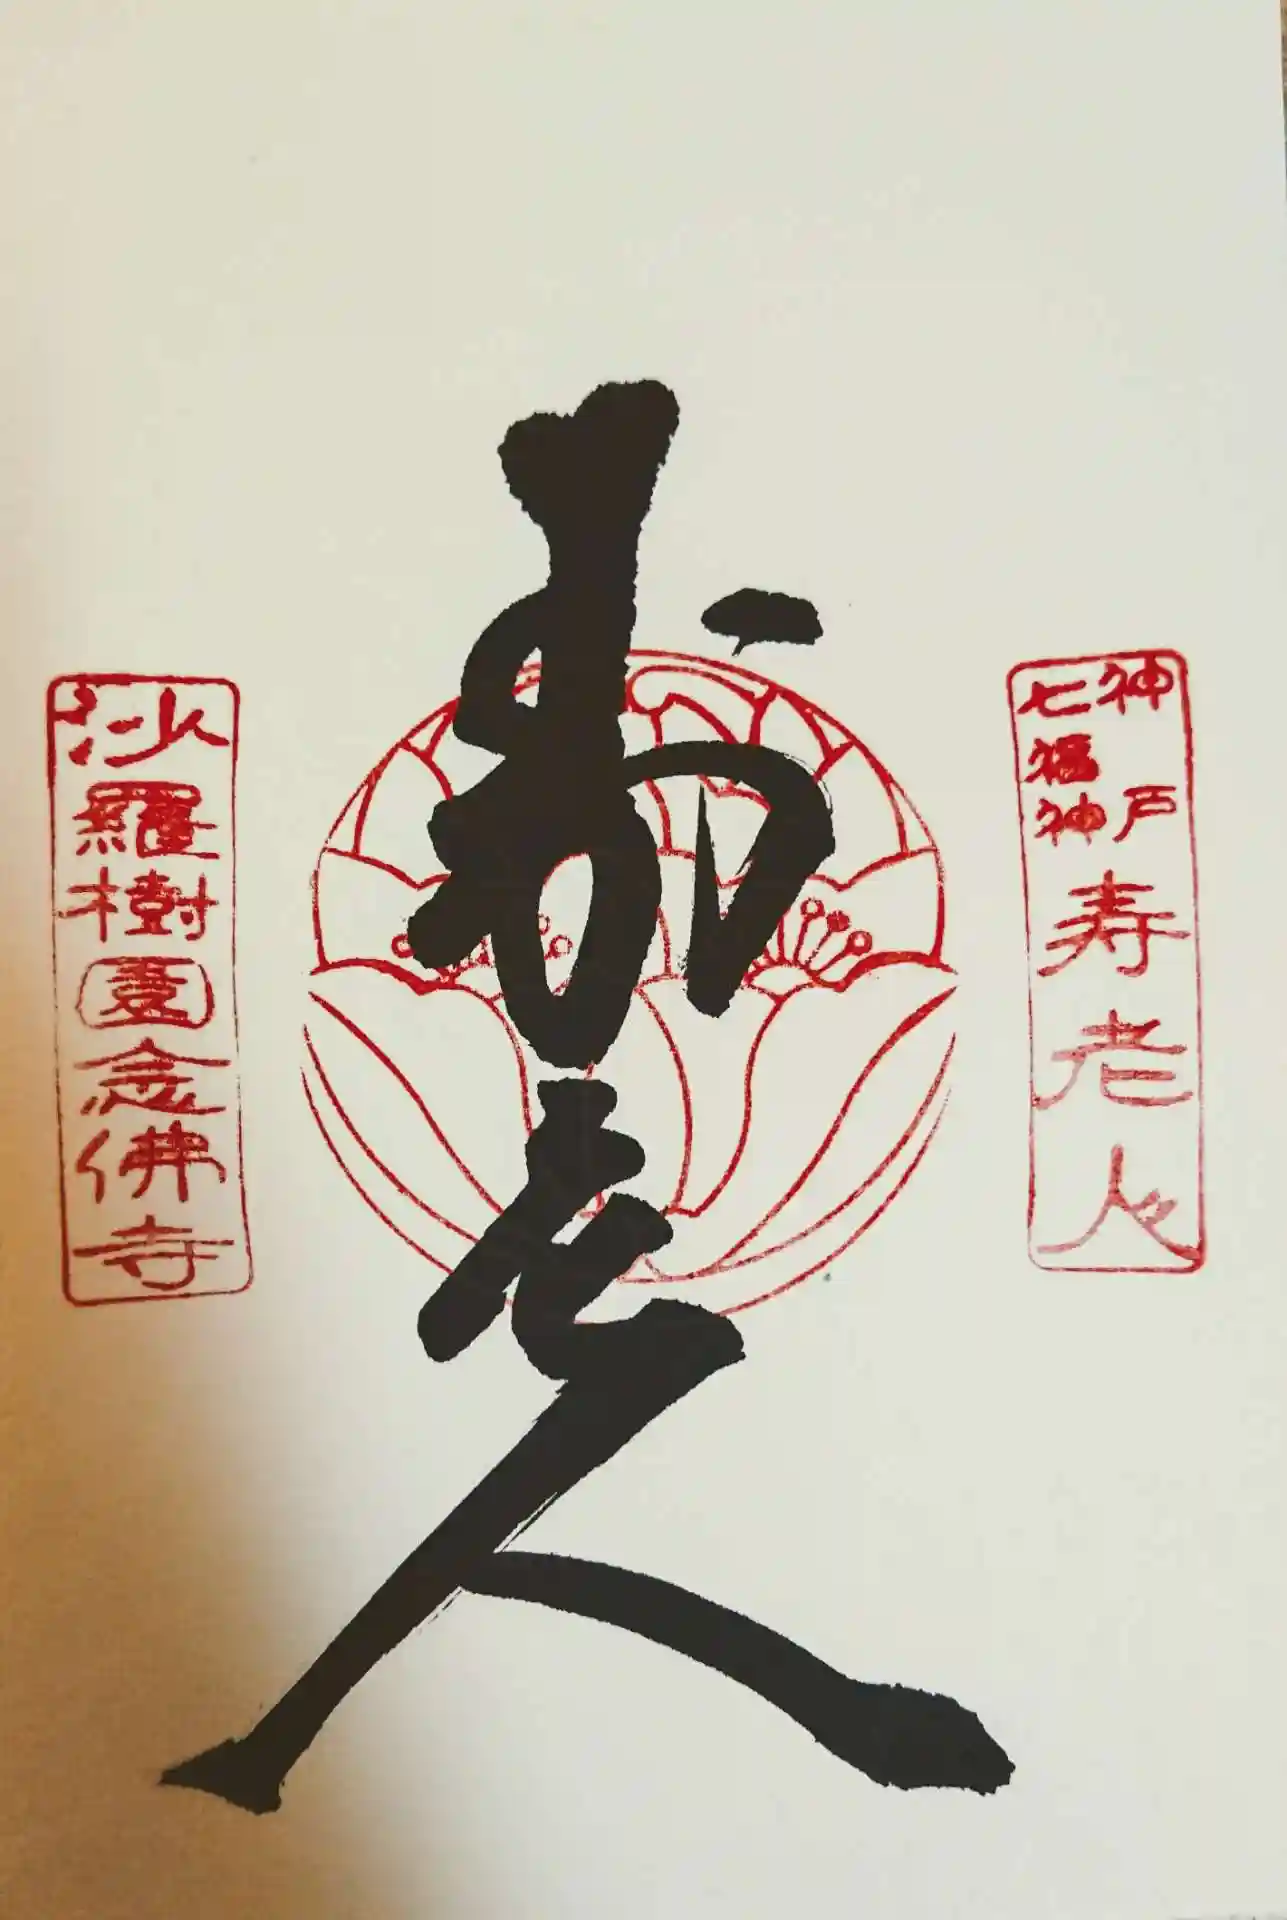 神戸
七福神
寿老人
寿老人
沙羅樹園念佛寺